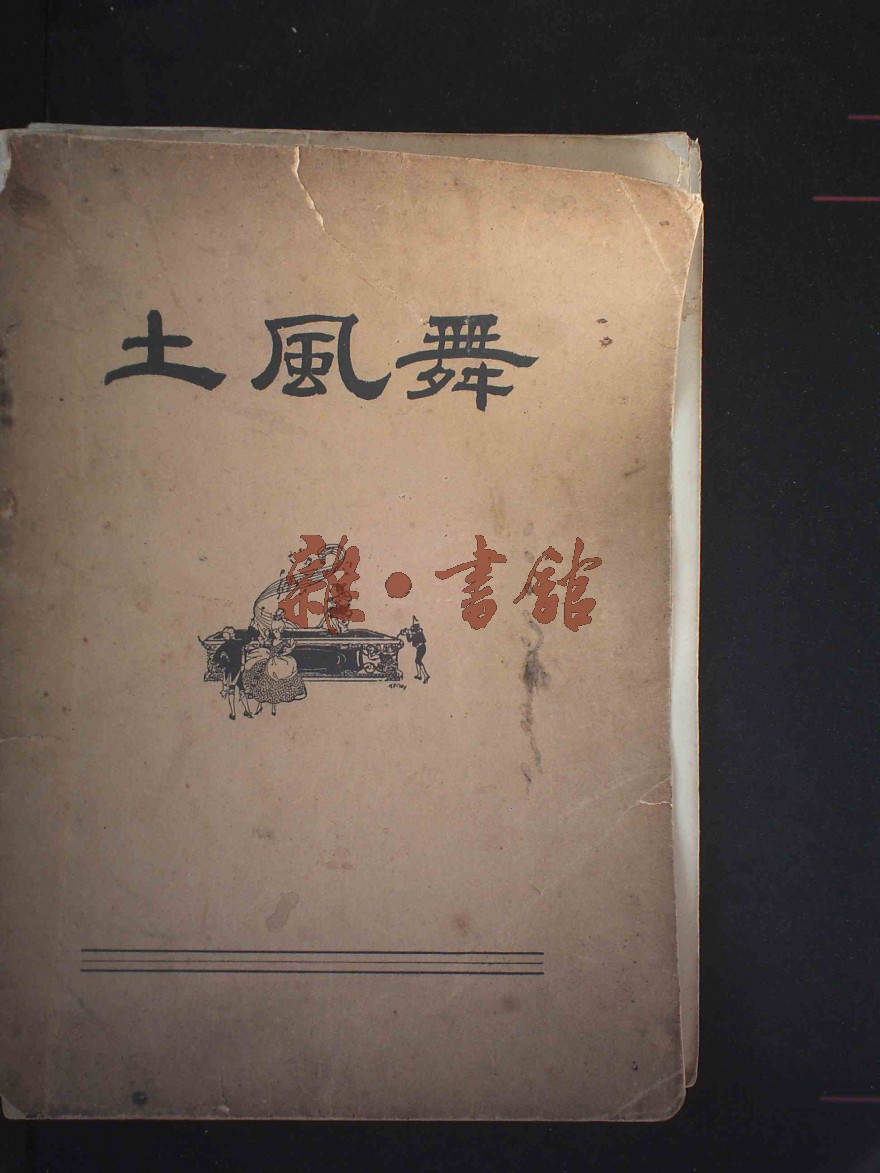 土風舞
雜·書館